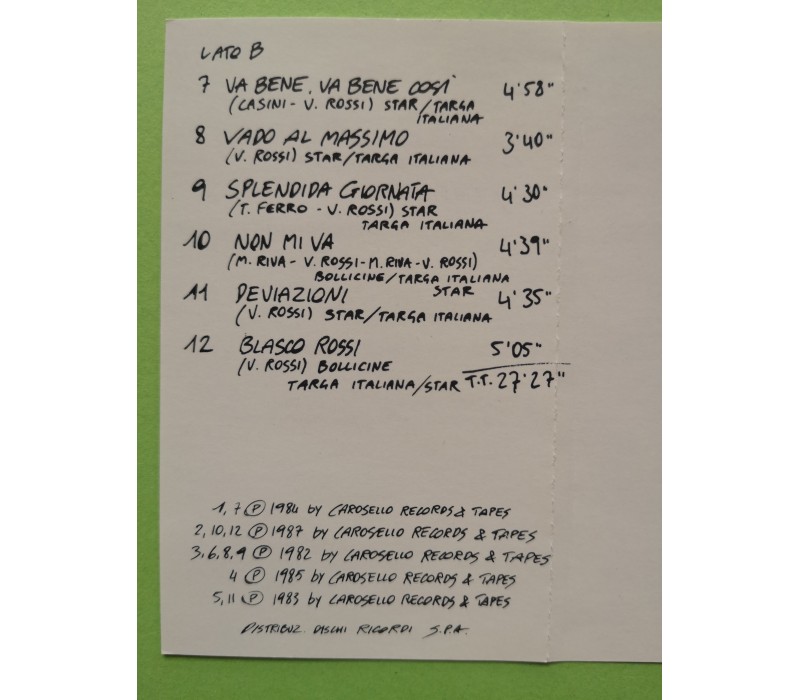 LATO B
7 VA BENE, VA BENE COSÌ 4'58"
(CASINI - V. ROSSI) STAR/TARGA
ITALIANA
8 VADO AL MASSIMO 3'40"
(V. ROSSI) STAR/TARGA ITALIANA
9 SPLENDIDA GIORNATA 4'30"
(T. FERRO - V. ROSSI) STAR
TARGA ITALIANA
10 NON MI VA 4'39"
(M. RIVA - V. ROSSI - M. RIVA - V. ROSSI)
BOLLICINE/TARGA ITALIANA
STAR
11 DEVIAZIONI 4'35"
(V. ROSSI) STAR/TARGA ITALIANA
12 BLASCO ROSSI 5'05"
(V. ROSSI) BOLLICINE
TARGA ITALIANA/STAR T.T. 27'27"
1, 7 ℗ 1984 by CAROSELLO RECORDS & TAPES
2, 10, 12 ℗ 1987 by CAROSELLO RECORDS & TAPES
3, 6, 8, 9 ℗ 1982 by CAROSELLO RECORDS & TAPES
4 ℗ 1985 by CAROSELLO RECORDS & TAPES
5, 11 ℗ 1983 by CAROSELLO RECORDS & TAPES
DISTRIBUZ. DISCHI RICORDI S.P.A.